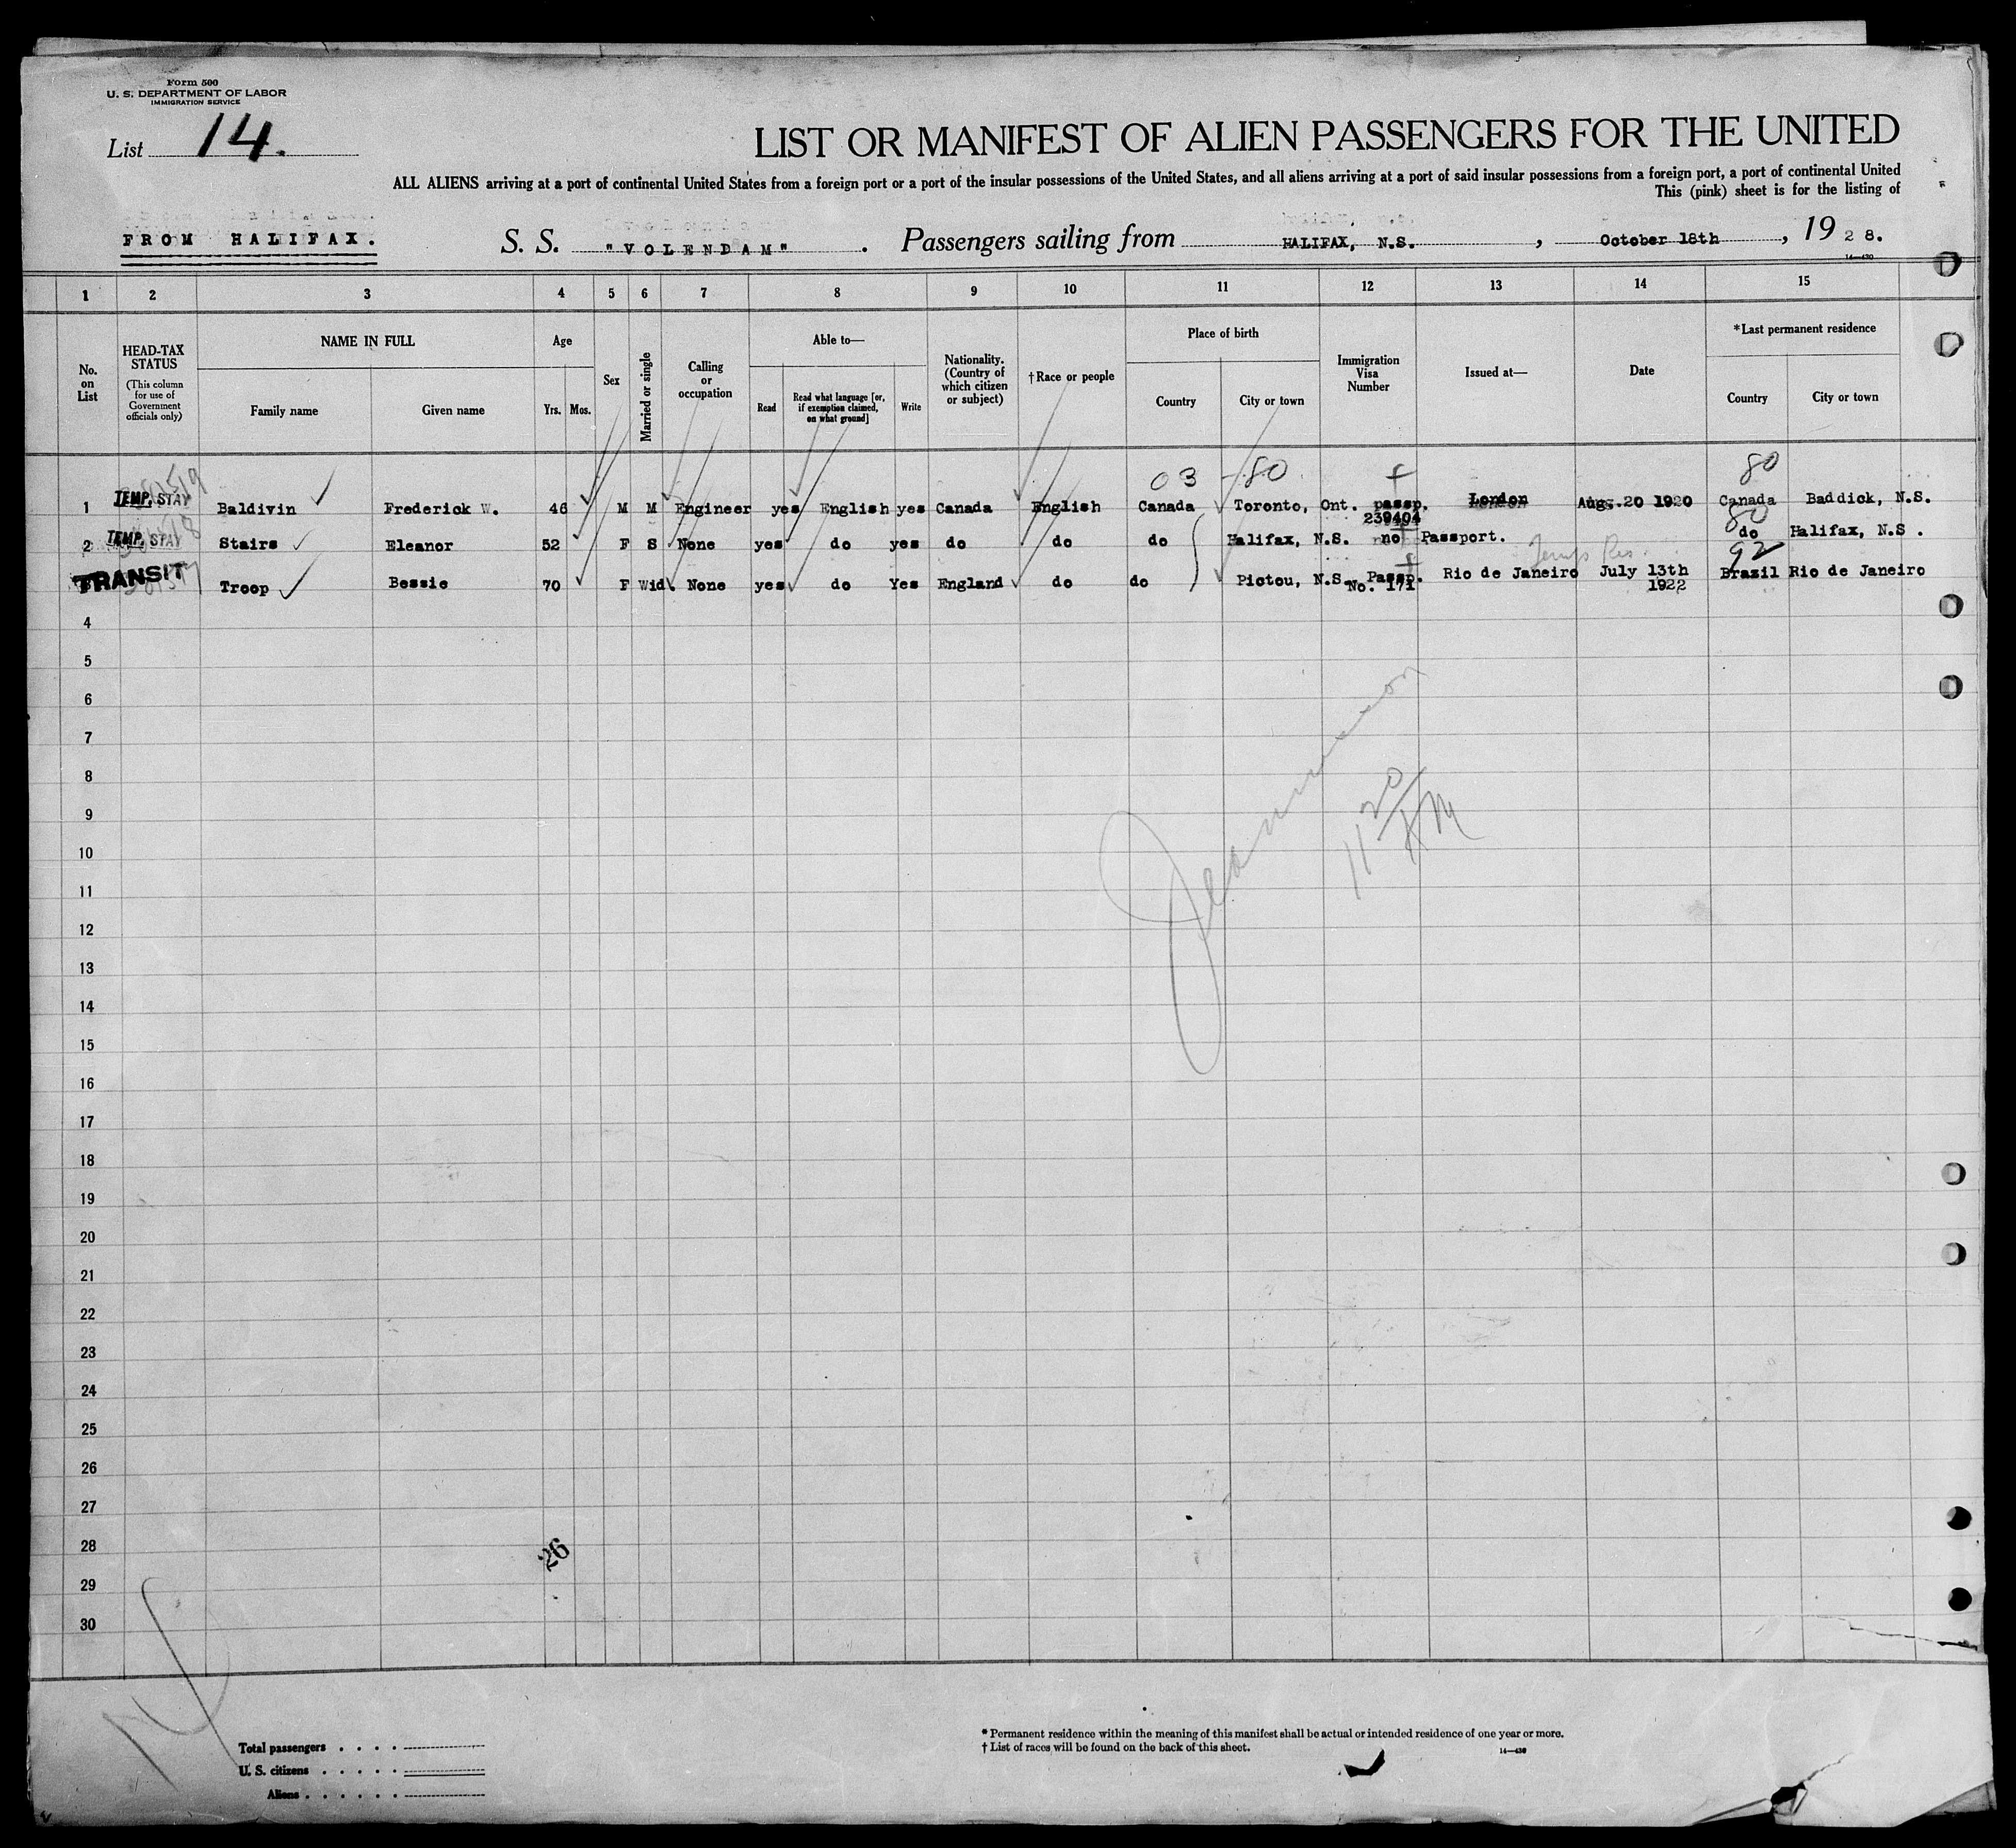 Form 500
U. S. DEPARTMENT OF LABOR
IMMIGRATION SERVICE
List 14.
LIST OR MANIFEST OF ALIEN PASSENGERS FOR THE UNITED
ALL ALIENS arriving at a port of continental United States from a foreign port or a port of the insular possessions of the United States, and all aliens arriving at a port of said insular possessions from a foreign port, a port of continental United
This (pink) sheet is for the listing of
FROM HALIFAX. S. S. "VOLENDAM" . Passengers sailing from HALIFAX, N.S. , October 18th , 19 2 8.
14—430
1 2 3 4 5 6 7 8 9 10 11 12 13 14 15
No. on List
HEAD-TAX STATUS (This column for use of Government officials only)
NAME IN FULL
Family name Given name
Age
Yrs. Mos.
Sex
Married or single
Calling or occupation
Able to—
Read Read what language [or, if exemption claimed, on what ground] Write
Nationality. (Country of which citizen or subject)
†Race or people
Place of birth
Country City or town
Immigration Visa Number
Issued at—
Date
*Last permanent residence
Country City or town
03 -80 80
1 TEMP. STAY Baldivin Frederick W. 46 M M Engineer yes English yes Canada English Canada Toronto, Ont. passp. London Aug. 20 1920 Canada Baddick, N.S.
239404 80
2 TEMP. STAY Stairs Eleanor 52 F S None yes do yes do do do Halifax, N.S. no Passport. do Halifax, N.S .
92
TRANSIT Troop Bessie 70 F Wid. None yes do Yes England do do Pictou, N.S. Passp. Rio de Janeiro July 13th Brazil Rio de Janeiro
No. 171 1922
4
5
6
7
8
9
10
11
12
13
14
15
16
17
18
19
20
21
22
23
24
25
26
27
28
29
30
11 20 AM
26
Total passengers . . . .
U. S. citizens . . . . .
Aliens . . . . . .
* Permanent residence within the meaning of this manifest shall be actual or intended residence of one year or more.
† List of races will be found on the back of this sheet.
14—430